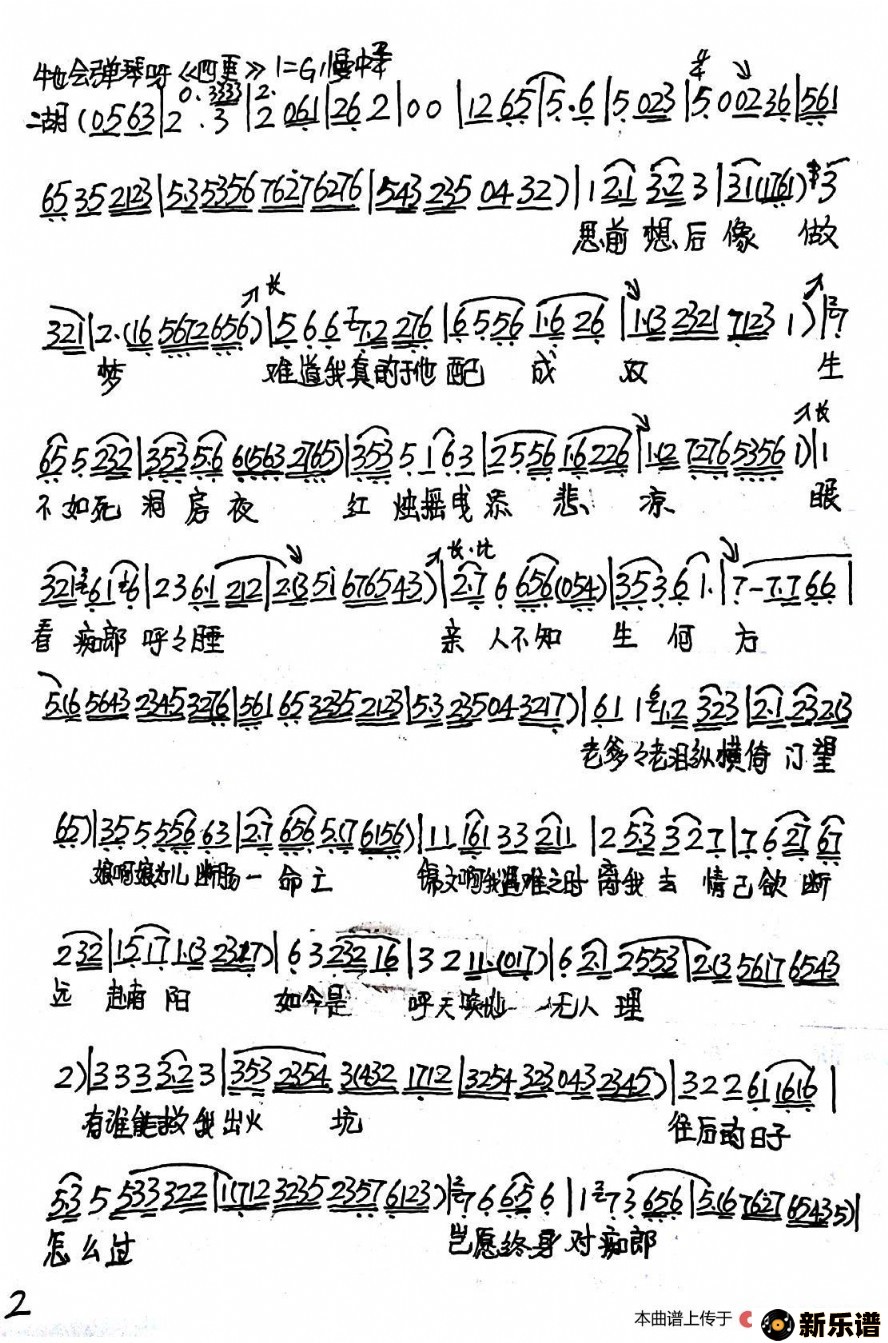 牛也会弹琴呀《四更》1=G 慢中板
二胡 (0563|2 0.3333 .3|2 2. 061|26 2|00|12 65|5.6|5 023|5. 00236|561
65 35 2123|5.35356 7627 6276|543 235 04 32)|1 2.1 3.2 3|31(1761)3
思前想后像 做
321|2.(16 5672656)|5 6 6 7.2 276|6 5.56 1.6 26|1.(3 2321 7123 1)|7
梦 难道我真的于他配 成 双 生
65 5 232|353 5.6 6(563 2765)|353 5 1 6 3|2 5.56 1.6 226|1.(2 7276 5356 1)|1
不如死洞房夜 红烛摇曳添悲凉 眼
321 61 6|2 3 6.1 212|2.(3 5i 676543)|2.7 6 656(054)|353 6 1.|7-7.7 66|
看痴郎呼々睡 亲人不知生何方
5.(6 5643 2345 3276|561 65 3235 2123|5.3 235 04 3217)|61 1 1.2 323|2.1 232(3
老爹々老泪纵横倚门望
65)|35 5 556 63|2.7 656 5.(7 6156)|11 161 33 211|2 5.3 32 7|7 6 27 67
娘啊娘为儿断肠一命亡 锦文啊我遇难之时离我去情已欲断
2 32|15 17 1.(3 2327)|6 3 232 16|3 2 11.(017)|6 2.1 2553|2.(3 5617 6543
远赴南阳 如今是 呼天唤地 无人理
2)|3 3 3 3.2 3|353 2354 3(432 1712|3254 323 043 2345)|3 2 2 61 1616|
有谁能救我出火坑 往后的日子
5.3 5 533 322|1(712 3235 2357 6123)|7 6 6.5 6|1 7 3 656|5.(6 7627 65435)|
怎么过 岂愿终身对痴郎
2
本曲谱上传于 新乐谱